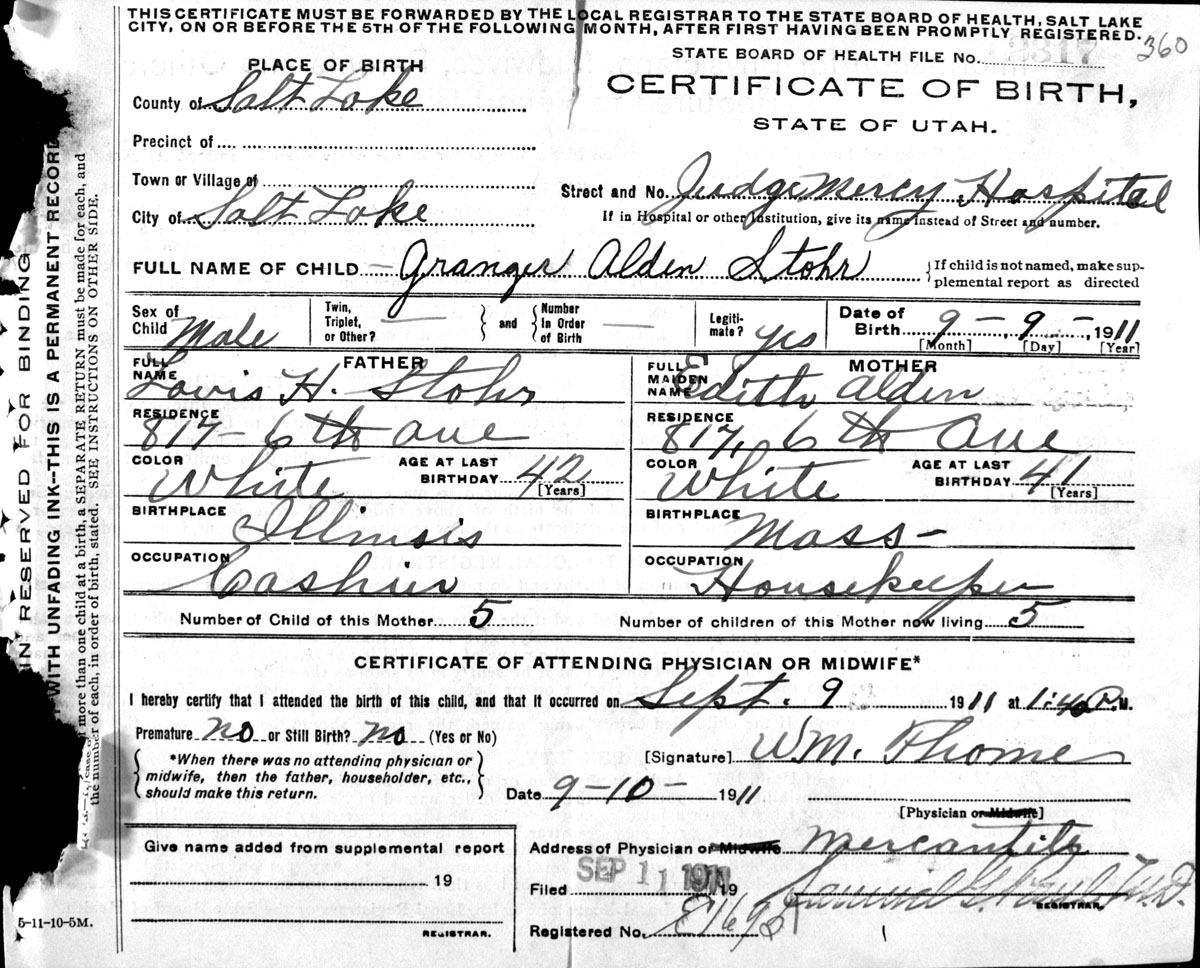 THIS CERTIFICATE MUST BE FORWARDED BY THE LOCAL REGISTRAR TO THE STATE BOARD OF HEALTH, SALT LAKE
CITY, ON OR BEFORE THE 5TH OF THE FOLLOWING MONTH, AFTER FIRST HAVING BEEN PROMPTLY REGISTERED.
360
STATE BOARD OF HEALTH FILE No.
CERTIFICATE OF BIRTH,
STATE OF UTAH.
PLACE OF BIRTH
County of Salt Lake
Precinct of
Town or Village of
City of Salt Lake
Street and No. Judge Mercy Hospital
If in Hospital or other Institution, give its name instead of Street and number.
FULL NAME OF CHILD Granger Alden Stohr
If child is not named, make sup-
plemental report as directed
Sex of Child Male
Twin, Triplet, or Other? — and Number In Order of Birth —
Legiti-mate? yes
Date of Birth 9 - 9 - 1911
[Month] [Day] [Year]
FATHER
FULL NAME Louis H. Stohr
RESIDENCE 817 - 6th ave
COLOR White AGE AT LAST BIRTHDAY 42 [Years]
BIRTHPLACE Illinois
OCCUPATION Cashier
MOTHER
FULL MAIDEN NAME Edith Alden
RESIDENCE 817, 6th Ave
COLOR White AGE AT LAST BIRTHDAY 41 [Years]
BIRTHPLACE Mass-
OCCUPATION Housekeeper
Number of Child of this Mother 5 Number of children of this Mother now living 5
CERTIFICATE OF ATTENDING PHYSICIAN OR MIDWIFE*
I hereby certify that I attended the birth of this child, and that it occurred on Sept. 9 1911 at 1:40 P.M.
Premature no or Still Birth? no (Yes or No)
*When there was no attending physician or
midwife, then the father, householder, etc.,
should make this return.
[Signature]
Date 9-10- 1911
[Physician or Midwife]
Give name added from supplemental report
19
REGISTRAR.
Address of Physician or Midwife Mercantile
Filed SEP 11 1911 19
REGISTRAR.
Registered No.
5-11-10-5M.
IN RESERVED FOR BINDING
WITH UNFADING INK—THIS IS A PERMANENT RECORD
more than one child at a birth, a SEPARATE RETURN must be made for each, and
the number of each, in order of birth, stated. SEE INSTRUCTIONS ON OTHER SIDE,